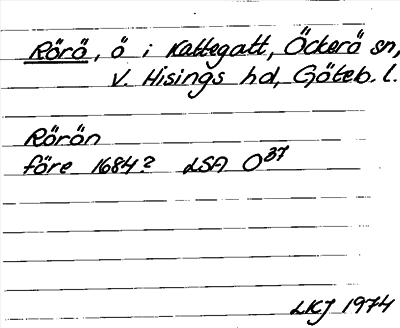 Rörö, ö i Kattegatt, Öckerö sn,
V. Hisings hd, Göteb. l.
Rörön
före 1684? LSA O37
LKJ 1974